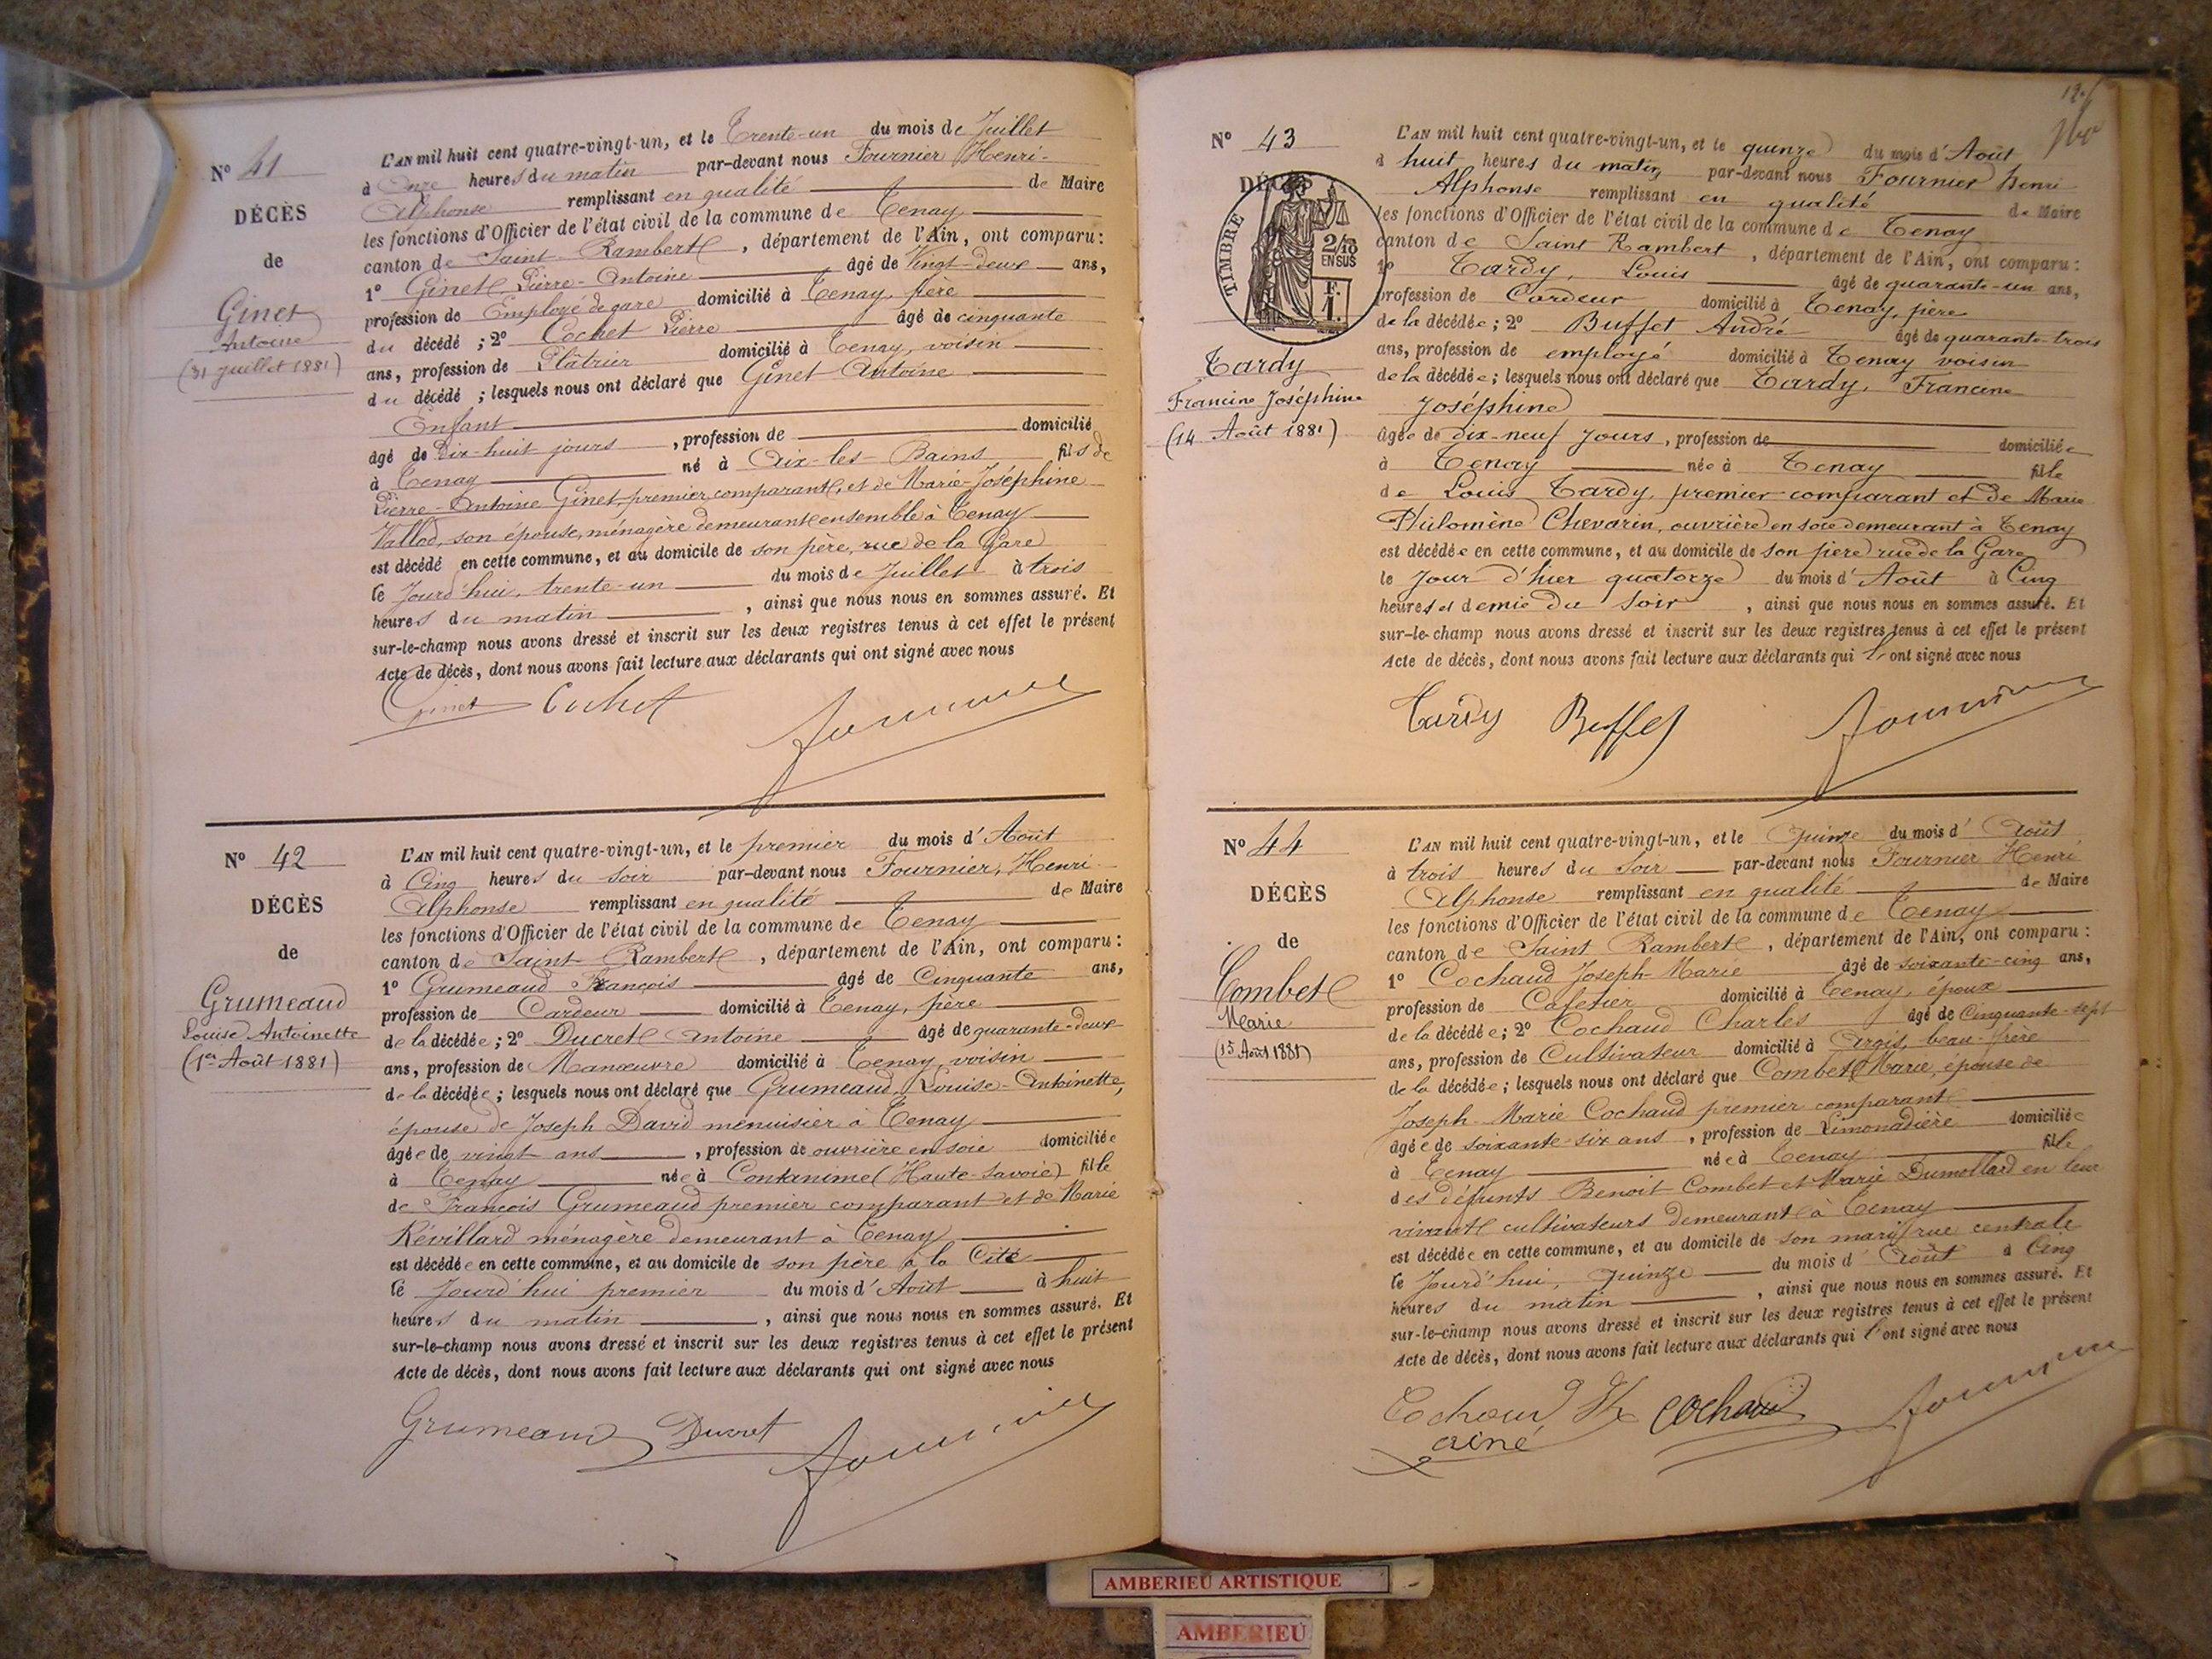 N° 41
DÉCÈS
de
Ginet
Antoine
(31 Juillet 1881)
L'AN mil huit cent quatre-vingt-un, et le Trente-un du mois de Juillet
à Onze heures du matin par-devant nous Fournier Henri-
Alphonse remplissant en qualité de Maire
les fonctions d'Officier de l'état civil de la commune de Tenay
canton de Saint-Rambert, département de l'Ain, ont comparu:
1° Ginet, Pierre-Antoine âgé de Vingt-deux ans,
profession de Employé de gare domicilié à Tenay, père
du décédé ; 2° Cochet Pierre âgé de cinquante
ans, profession de Plâtrier domicilié à Tenay, voisin
du décédé ; lesquels nous ont déclaré que Ginet Antoine
Enfant
âgé de Dix-huit jours, profession de domicilié
à Tenay né à Aix-les-Bains fils de
Pierre-Antoine Ginet, premier comparant, et de Marie-Joséphine
Vallod, son épouse, ménagère demeurant ensemble à Tenay
est décédé en cette commune, et au domicile de son père, rue de la Gare
le Jourd'hui, trente-un du mois de Juillet à trois
heures du matin, ainsi que nous nous en sommes assuré. Et
sur-le-champ nous avons dressé et inscrit sur les deux registres tenus à cet effet le présent
Acte de décès, dont nous avons fait lecture aux déclarants qui ont signé avec nous
Ginet Cochet Fournier
N° 42
DÉCÈS
de
Grumeaud
Louise Antoinette
(1er Août 1881)
L'AN mil huit cent quatre-vingt-un, et le premier du mois d'Août
à Cinq heures du soir par-devant nous Fournier, Henri
Alphonse remplissant en qualité de Maire
les fonctions d'Officier de l'état civil de la commune de Tenay
canton de Saint-Rambert, département de l'Ain, ont comparu:
1° Grumeaud François âgé de Cinquante ans,
profession de Cardeur domicilié à Tenay, père
de la décédée ; 2° Ducret Antoine âgé de quarante-deux
ans, profession de Manœuvre domicilié à Tenay, voisin
de la décédée ; lesquels nous ont déclaré que Grumeaud, Louise-Antoinette,
épouse de Joseph David menuisier à Tenay
âgée de vingt ans, profession de ouvrière en soie domiciliée
à Tenay née à Contanime (Haute-Savoie) fille
de François Grumeaud premier comparant et de Marie
Révillard ménagère demeurant à Tenay
est décédée en cette commune, et au domicile de son père à la Cité
le Jourd'hui premier du mois d'Août à huit
heures du matin, ainsi que nous nous en sommes assuré. Et
sur-le-champ nous avons dressé et inscrit sur les deux registres tenus à cet effet le présent
Acte de décès, dont nous avons fait lecture aux déclarants qui ont signé avec nous
Grumeaud Ducret Fournier
N° 43
DÉCÈS
TIMBRE
2/10
EN SUS
F.
1.
Tardy
Francine Joséphine
(14 Août 1881)
L'AN mil huit cent quatre-vingt-un, et le quinze du mois d'Août
à huit heures du matin par-devant nous Fournier henri
Alphonse remplissant en qualité de Maire
les fonctions d'Officier de l'état civil de la commune de Tenay
canton de Saint Rambert, département de l'Ain, ont comparu:
1° Tardy, Louis âgé de quarante-un ans,
profession de Cardeur domicilié à Tenay, père
de la décédée ; 2° Buffet André âgé de quarante-trois
ans, profession de employé domicilié à Tenay voisin
de la décédée ; lesquels nous ont déclaré que Tardy, Francine
Joséphine
âgée de dix-neuf jours, profession de domiciliée
à Tenay née à Tenay fille
de Louis Tardy, premier comparant et de Marie
Philomène Chevarin, ouvrière en soie demeurant à Tenay
est décédée en cette commune, et au domicile de son père rue de la Gare
le Jour d'hier quatorze du mois d'Août à Cinq
heures et demie du soir, ainsi que nous nous en sommes assuré. Et
sur-le-champ nous avons dressé et inscrit sur les deux registres tenus à cet effet le présent
Acte de décès, dont nous avons fait lecture aux déclarants qui l'ont signé avec nous
Tardy Buffet Fournier
N° 44
DÉCÈS
de
Combet
Marie
(15 Août 1881)
L'AN mil huit cent quatre-vingt-un, et le Quinze du mois d'Août
à trois heures du Soir par-devant nous Fournier Henri
Alphonse remplissant en qualité de Maire
les fonctions d'Officier de l'état civil de la commune de Tenay
canton de Saint Rambert, département de l'Ain, ont comparu:
1° Cochaud Joseph-Marie âgé de soixante-cinq ans,
profession de Cafetier domicilié à Tenay, époux
de la décédée ; 2° Cochaud Charles âgé de Cinquante-sept
ans, profession de Cultivateur domicilié à Argis, beau-frère
de la décédée ; lesquels nous ont déclaré que Combet Marie, épouse de
Joseph-Marie Cochaud premier comparant
âgée de soixante-six ans, profession de Limonadière domiciliée
à Tenay née à Tenay fille
des défunts Benoit Combet et Marie Dumollard en leur
vivant cultivateurs demeurant à Tenay
est décédée en cette commune, et au domicile de son mari, rue centrale
le Jourd'hui, quinze du mois d'Août à Cinq
heures du matin, ainsi que nous nous en sommes assuré. Et
sur-le-champ nous avons dressé et inscrit sur les deux registres tenus à cet effet le présent
Acte de décès, dont nous avons fait lecture aux déclarants qui l'ont signé avec nous
Cochaud Cochaud Fournier
ainé
AMBERIEU ARTISTIQUE
AMBERIEU